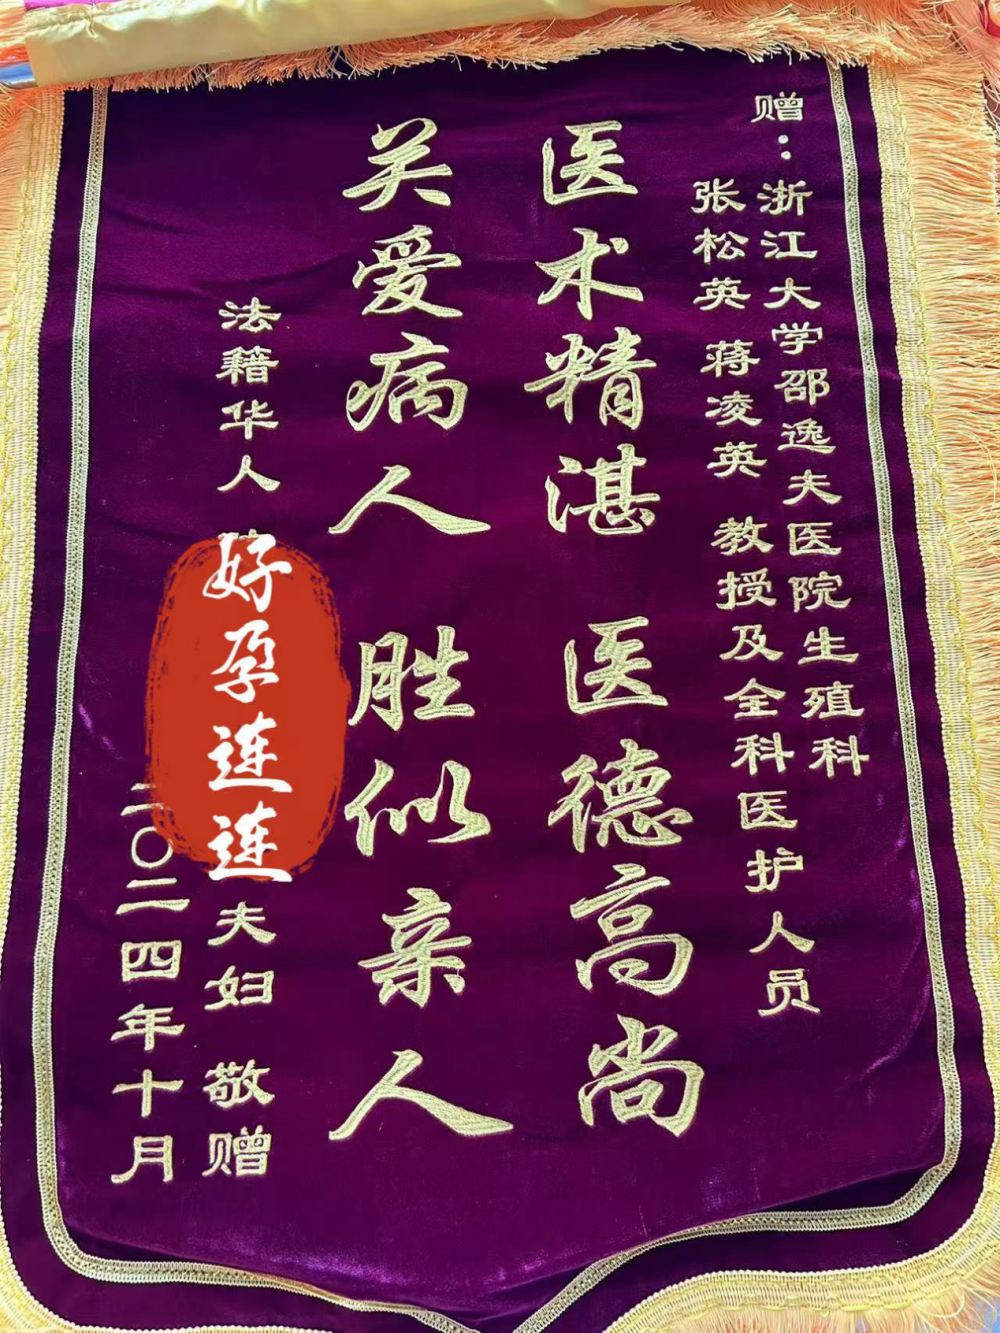 赠：浙江大学邵逸夫医院生殖科
张松英 蒋凌英 教授及全科医护人员
医术精湛 医德高尚
关爱病人 胜似亲人
法籍华人
好孕连连
夫妇 敬赠
二〇二四年十月